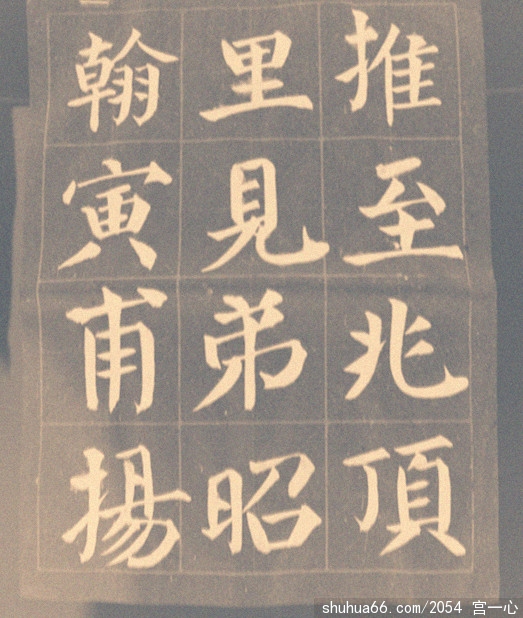 推至兆頂
里見弟昭
翰寅甫揚
shuhua66.com/2054 宫一心